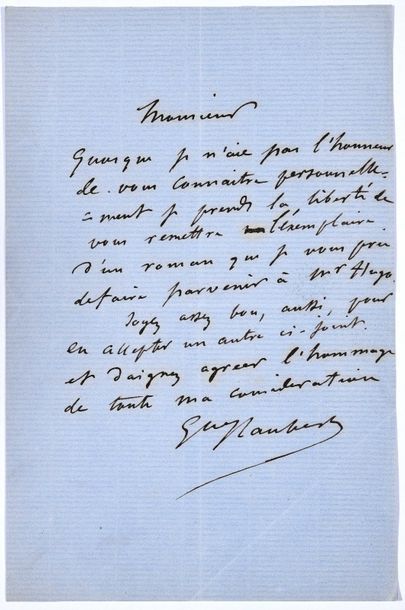 Monsieur
Quoique je n'aie pas l'honneur
de vous connaitre personnelle-
=ment je prends la liberté de
vous remettre l'exemplaire
d'un roman que je vous prie
de faire parvenir à Mr Hugo.
Soyez assez bon, aussi, pour
en accepter un autre ci-joint.
et daignez agréer l'hommage
de toute ma considération
Gve Flaubert